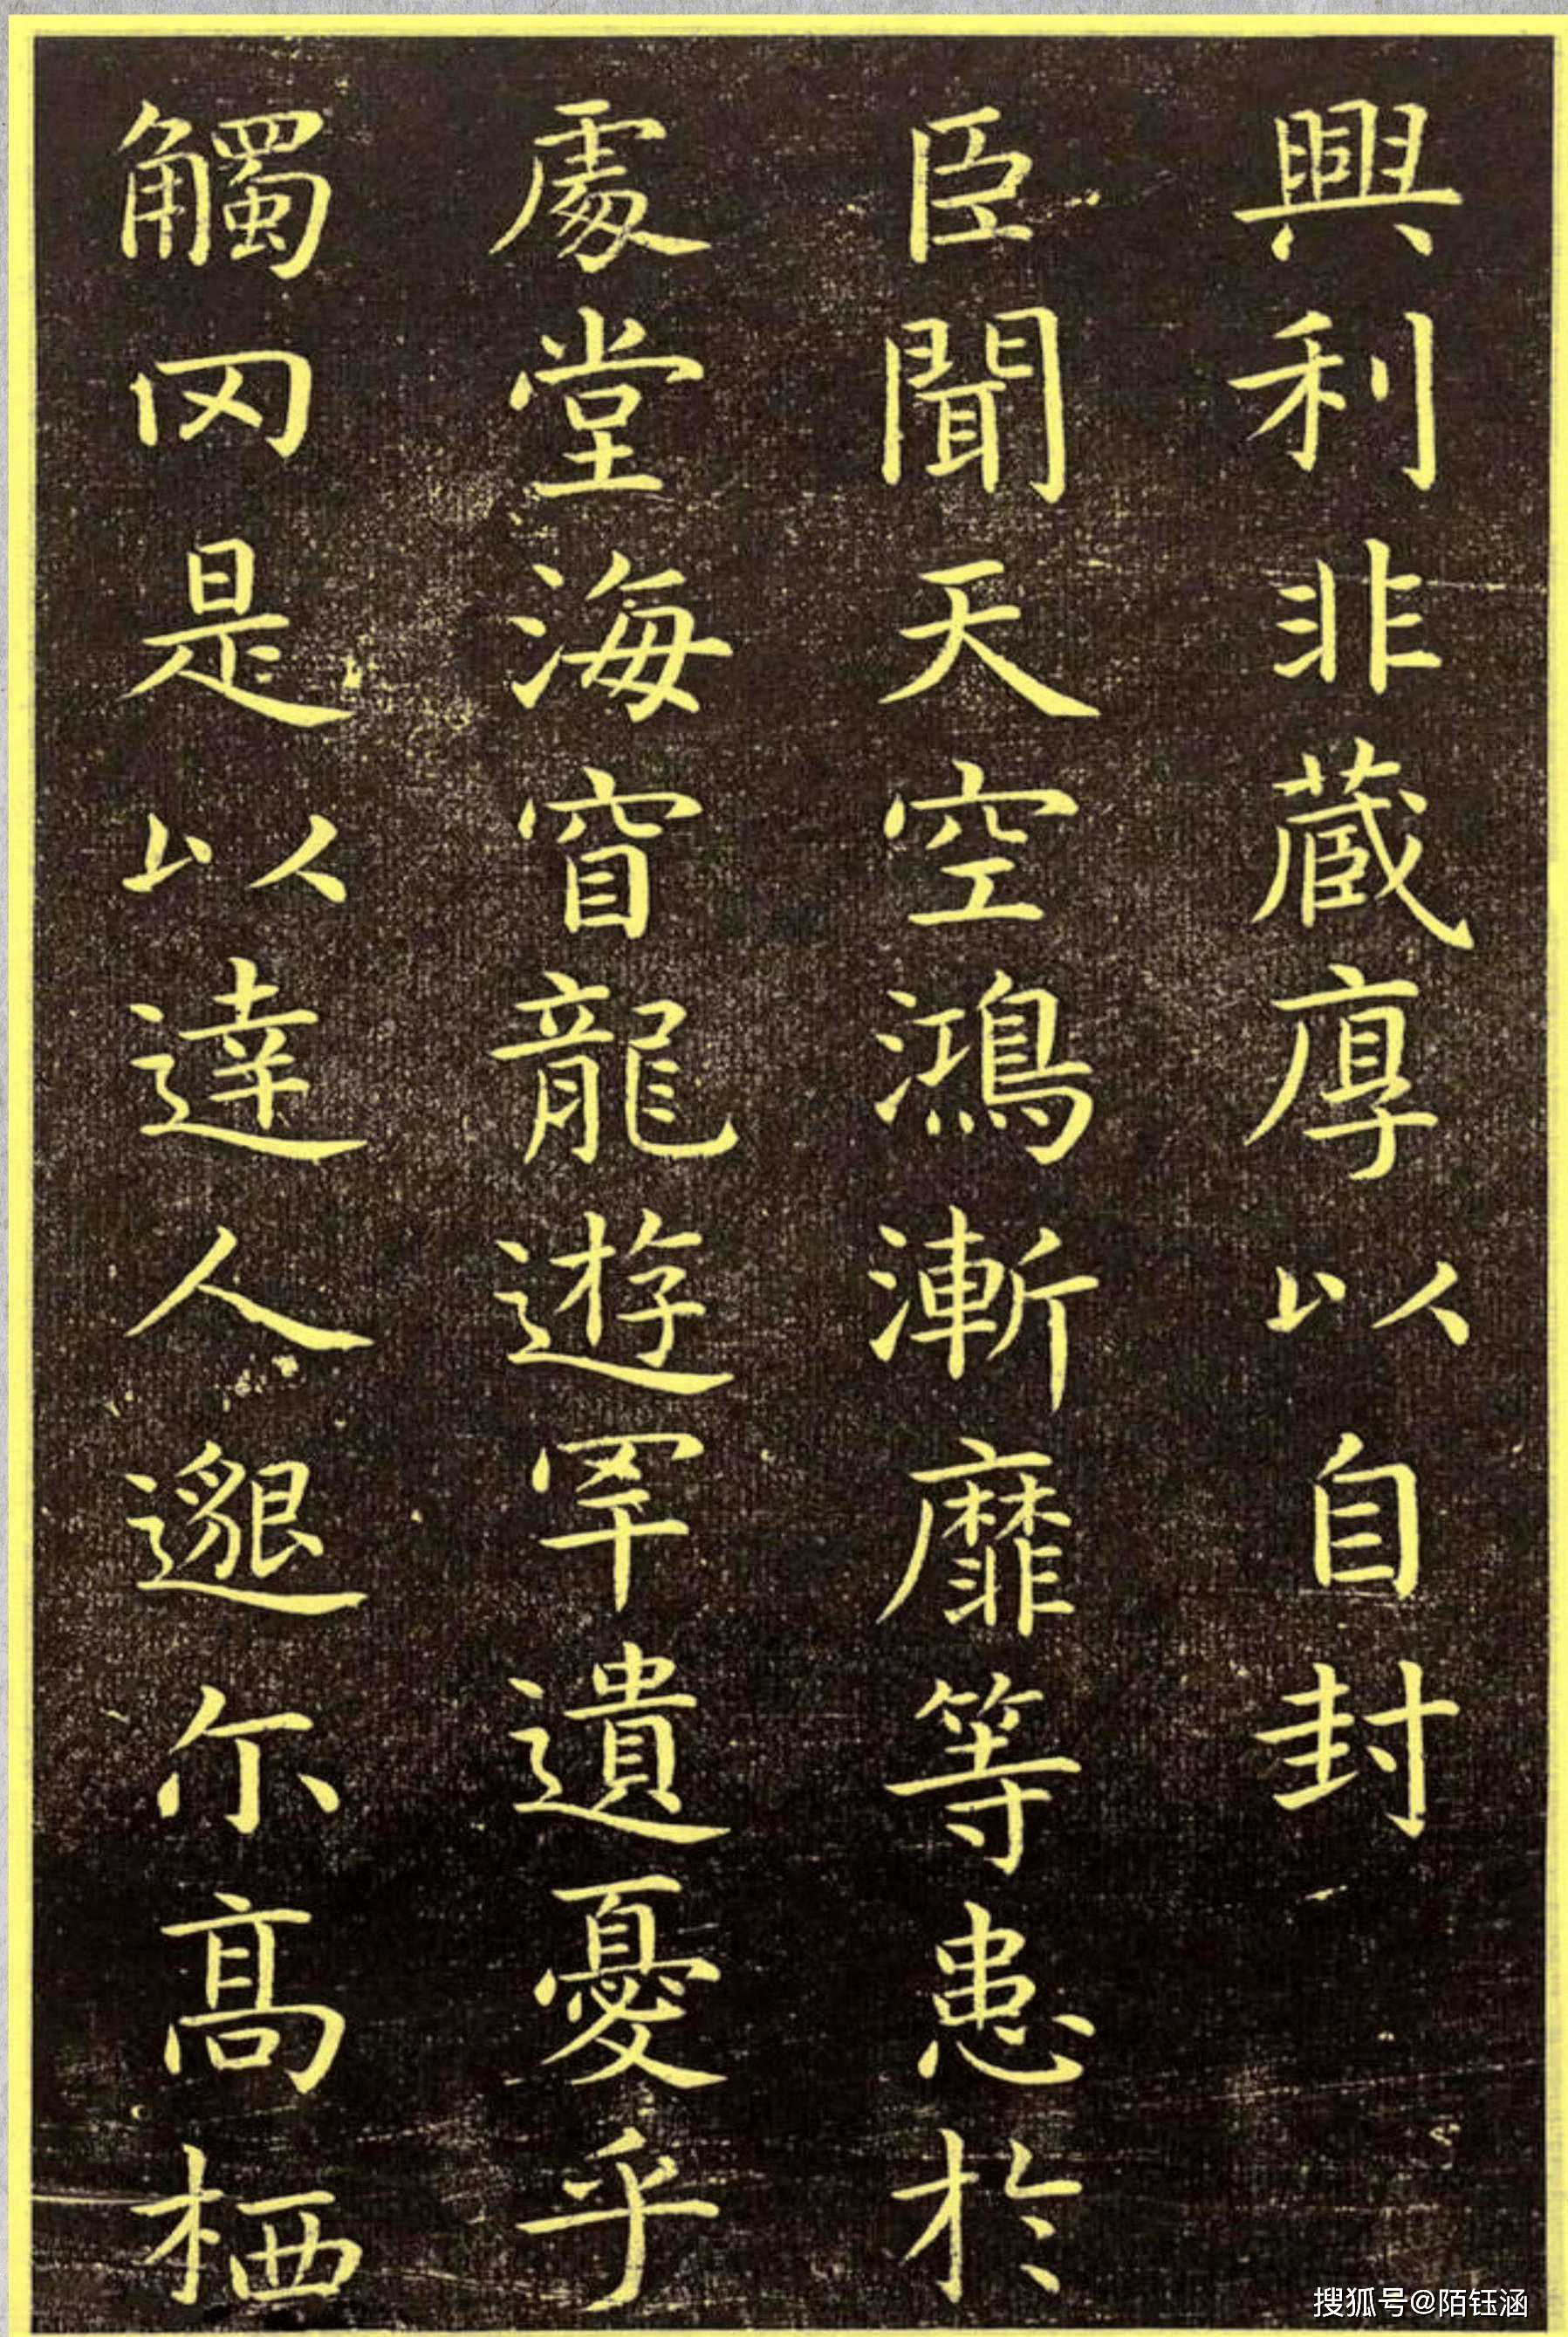 興利非蔵厚以自封
臣聞天空鴻漸靡等患於
處堂海窅龍遊罕遺憂乎
觸罔是以達人邈尓高栖
搜狐号@陌钰涵